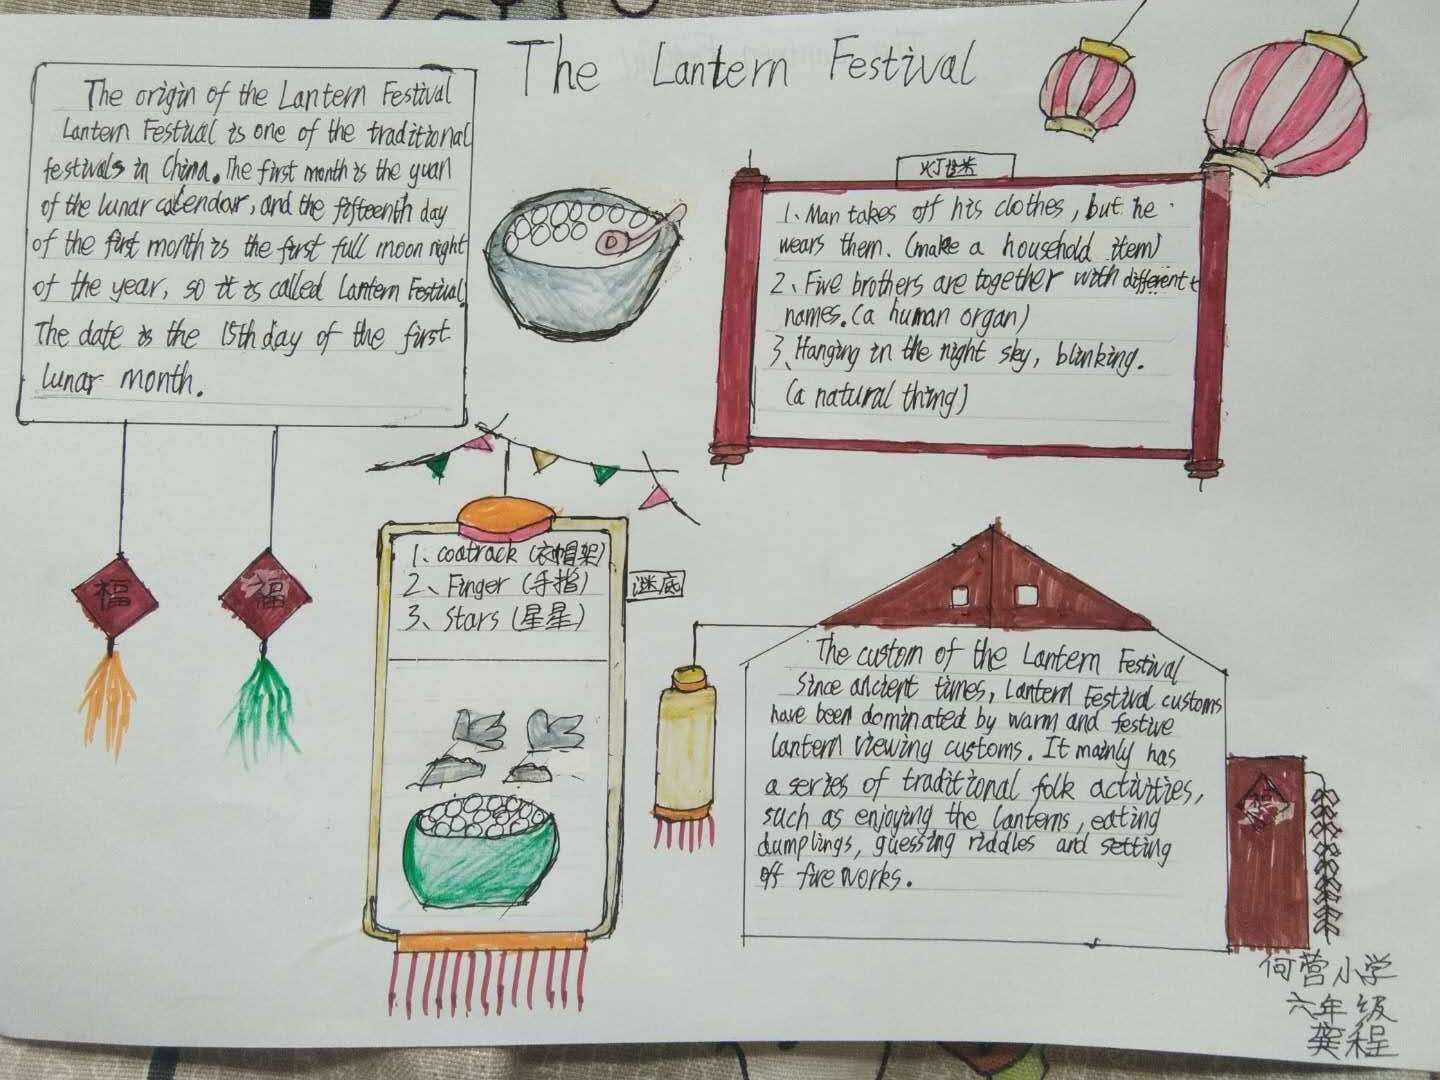 The Lantern Festival
The origin of the Lantern Festival
Lantern Festival is one of the traditional
festivals in China. The first month is the yuan
of the lunar calendar, and the fifteenth day
of the first month is the first full moon night
of the year, so it is called Lantern Festival.
The date is the 15th day of the first
lunar month.
福
福
灯谜
1、Man takes off his clothes, but he
wears them. (make a household item)
2、Five brothers are together with different
names. (a human organ)
3、Hanging in the night sky, blinking.
(a natural thing)
1、coatrack (衣帽架)
2、Finger (手指)
3、Stars (星星)
谜底
The custom of the Lantern Festival
Since ancient times, Lantern Festival customs
have been dominated by warm and festive
lantern viewing customs. It mainly has
a series of traditional folk activities,
such as enjoying the lanterns, eating
dumplings, guessing riddles and setting
off fireworks.
福
何营小学
六年级
龚程